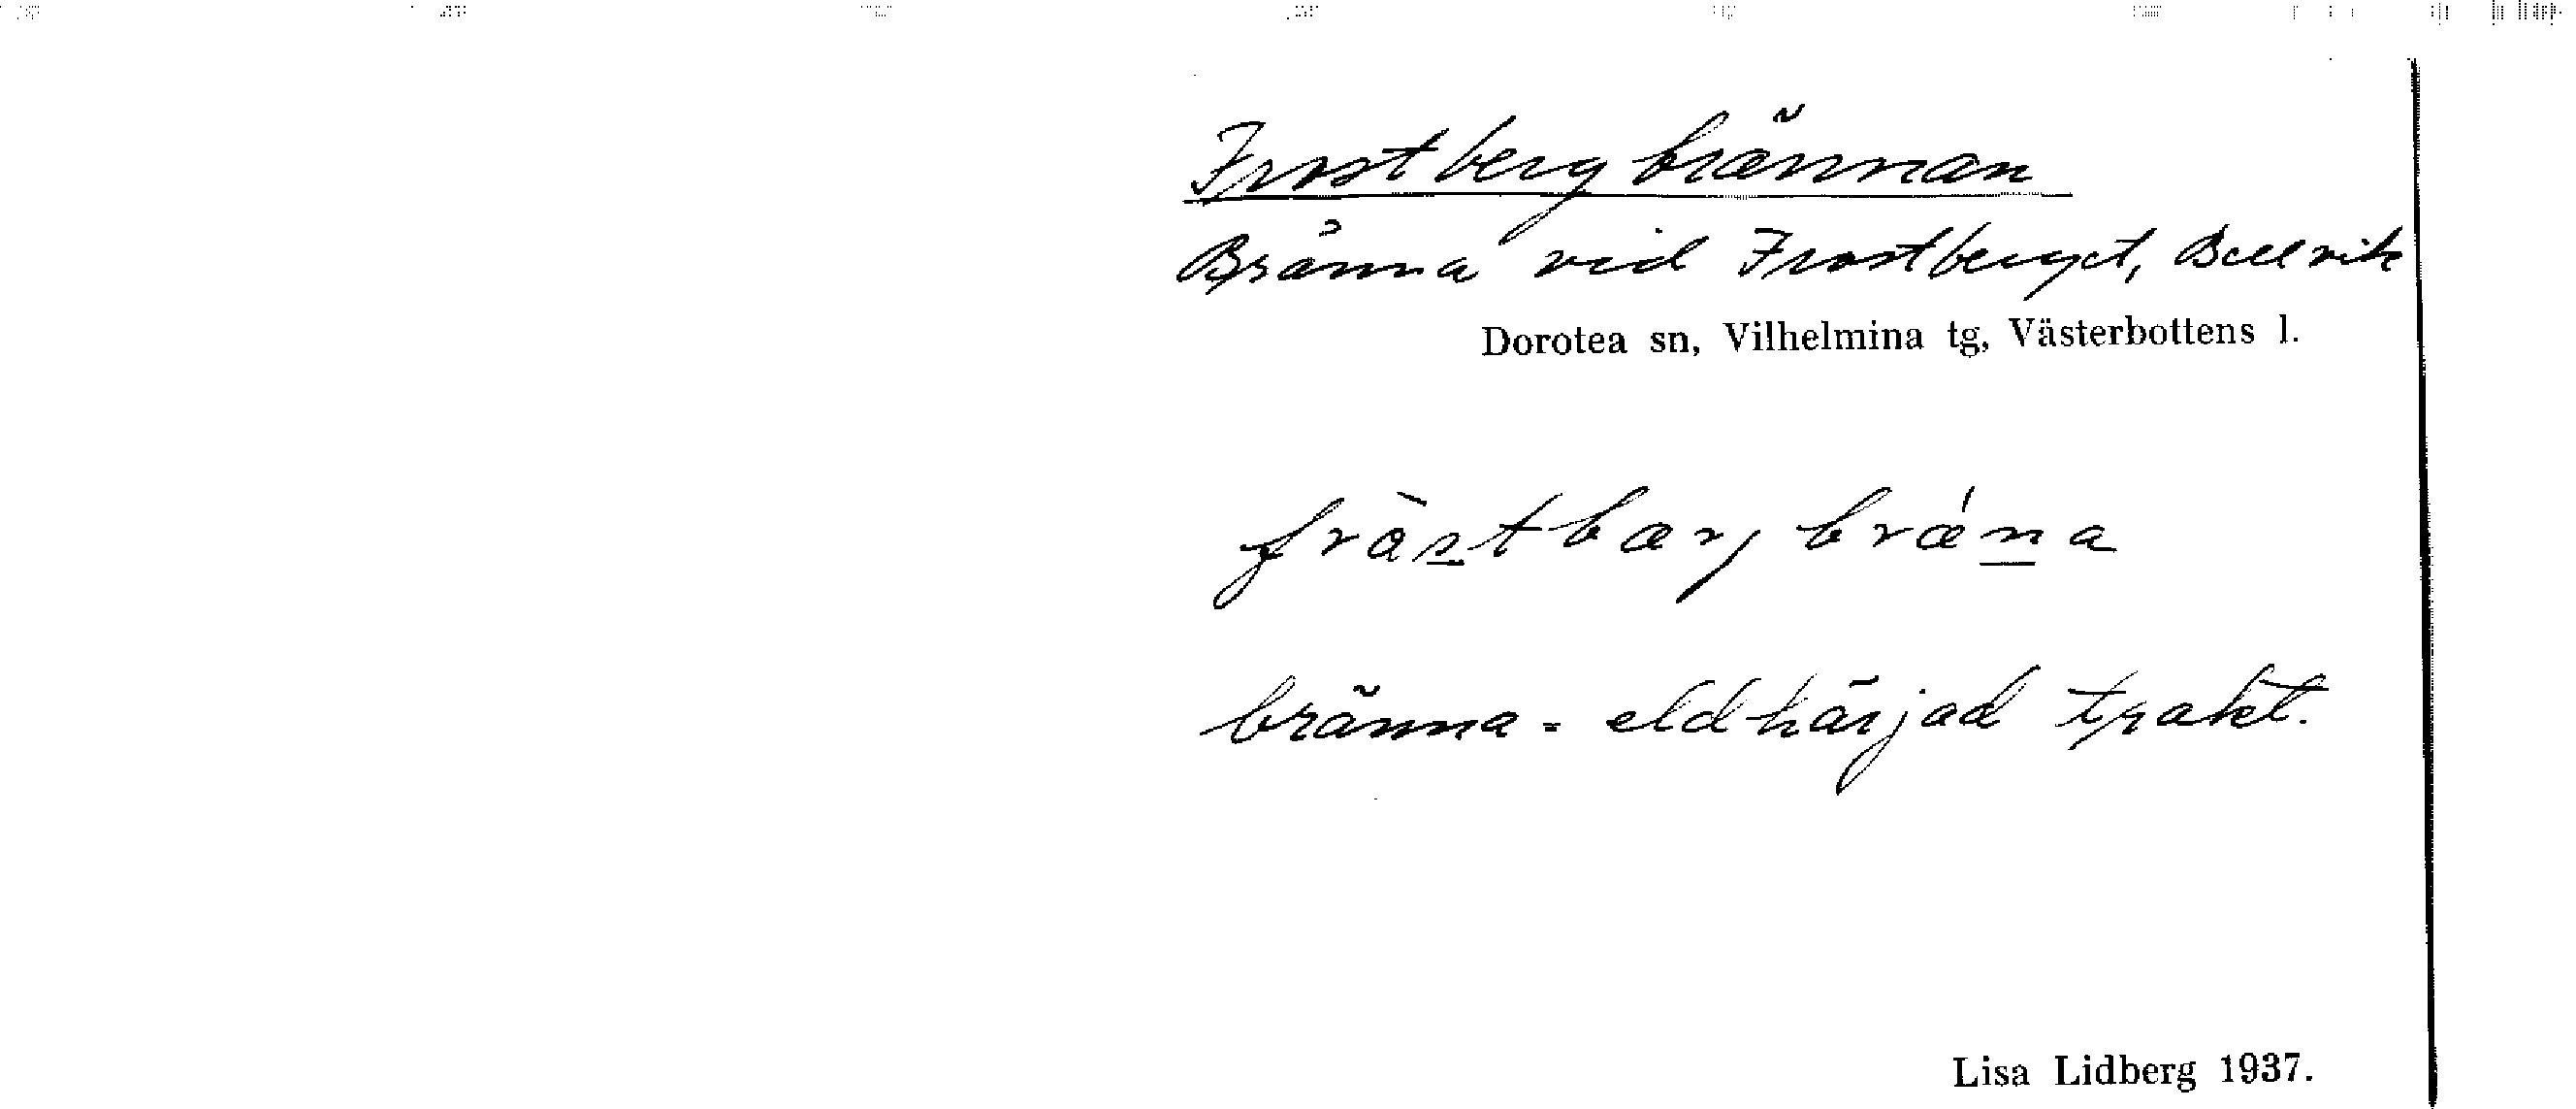 Frostbergbrännan
Bränna vid Frostberget, Bellvik
Dorotea sn, Vilhelmina tg, Västerbottens l.
fràstbærjbrǽna
bränna = eldhärjad trakt.
Lisa Lidberg 1937.